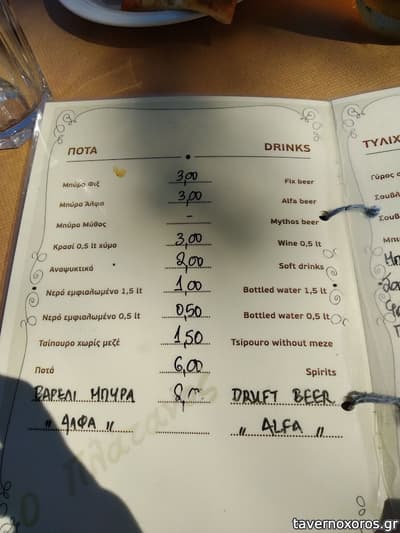 ΠΟΤΑ DRINKS
Μπύρα Φιξ 3,00 Fix beer
Μπύρα Άλφα 3,00 Alfa beer
Μπύρα Μύθος - Mythos beer
Κρασί 0,5 lt χύμα 3,00 Wine 0,5 lt
Αναψυκτικά 2,00 Soft drinks
Νερό εμφιαλωμένο 1,5 lt 1,00 Bottled water 1,5 lt
Νερό εμφιαλωμένο 0,5 lt 0,50 Bottled water 0,5 lt
Τσίπουρο χωρίς μεζέ 1,50 Tsipouro without meze
Ποτά 6,00 Spirits
ΒΑΡΕΛΙ ΜΠΥΡΑ DRUFT BEER
„ ΑΛΦΑ „ „ ALFA „
Ο Πλάτανος
ΤΥΛΙΧ
Γύρος
Σουβλ
Σουβλ
tavernoxoros.gr